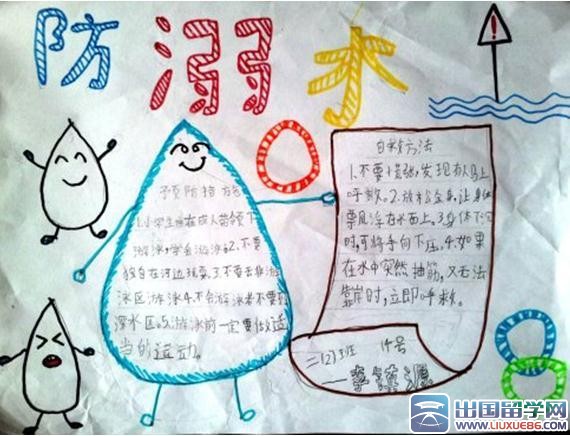 防溺水
预防措施
1.小学生应在成人带领下
游泳,学会游泳。2.不要
独自在河边玩耍。3.不要去非游
泳区游泳4.不会游泳者不要到
深水区。5.游泳前一定要做适
当的运动。
自救方法
1.不要慌张,发现有人马上
呼救。2.放松全身,让身体
飘浮在水面上,3.身体下沉
时,可将手向下压。4.如果
在水中突然抽筋,又无法
靠岸时,立即呼救。
二(2)班 号
出国留学网
WWW.LIUXUE86.COM